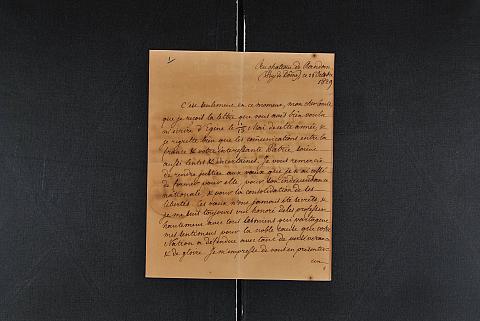 1/
Au château de Randan
(Puy de Dôme) ce 28 Octobre
1829
C'est seulement en ce moment, mon cher Comte
que je reçois la lettre que vous avez bien voulu
m'écrire d'Egine le 11/15 Mai de cette année, &
je regrette bien que les communications entre la
France & votre intéressante Patrie, soient
aussi lentes & incertaines. Je vous remercie
de rendre justice aux vœux que je n'ai cessé
de former pour elle, pour son indépendance
nationale, & pour la consolidation de ses
libertés. Ces vœux n'ont jamais été secrets, &
je me suis toujours cru honoré de les professer
hautement avec tous les hommes qui partagent
mes sentimens pour la noble cause que votre
Nation a défendue avec tant de persévérance
& de gloire. Je m'empresse de vous en présenter